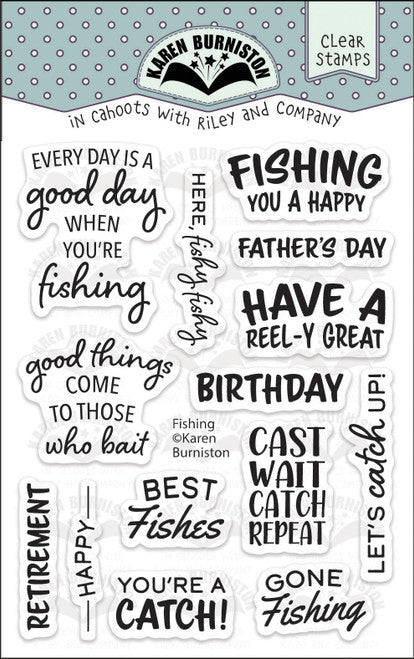 KAREN BURNISTON
CLEAR
STAMPS
in cahoots with Riley and Company
EVERY DAY IS A
good day
WHEN
YOU'RE
fishing
HERE, fishy fishy
FISHING
YOU A HAPPY
FATHER'S DAY
HAVE A
REEL-Y GREAT
good things
COME
TO THOSE
who bait
BIRTHDAY
Fishing
©Karen
Burniston
CAST
WAIT
CATCH
REPEAT
LET'S catch UP!
RETIREMENT
HAPPY
BEST
Fishes
YOU'RE A
CATCH!
GONE
Fishing